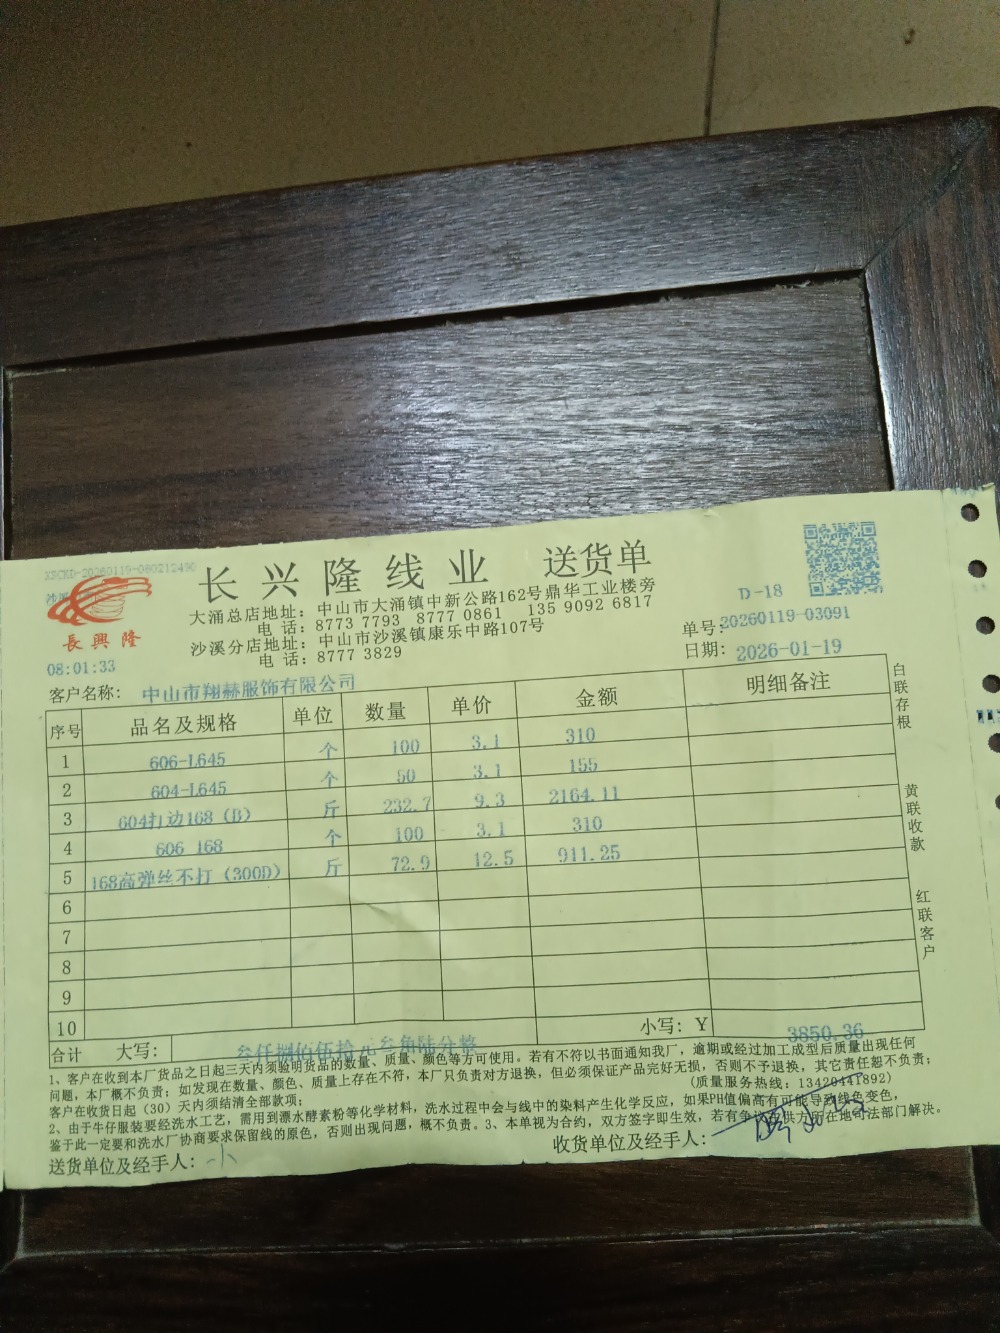 XSCKD-20260119-080212490
长兴隆线业 送货单
長興隆
大涌总店地址：中山市大涌镇中新公路162号鼎华工业楼旁
电话：8773 7793 8777 0861 135 9092 6817
沙溪分店地址：中山市沙溪镇康乐中路107号
电话：8777 3829
D-18
单号：20260119-03091
日期：2026-01-19
08:01:33
客户名称：中山市翔赫服饰有限公司
序号 品名及规格 单位 数量 单价 金额 明细备注
1 606-L645 个 100 3.1 310
2 604-L645 个 50 3.1 155
3 604打边168（B） 斤 232.7 9.3 2164.11
4 606 168 个 100 3.1 310
5 168高弹丝不打（300D） 斤 72.9 12.5 911.25
6
7
8
9
10
小写：Y 3850.36
合计 大写：叁仟捌佰伍拾 叁角陆分整
白联存根
黄联收款
红联客户
1、客户在收到本厂货品之日起三天内须验明货品的数量、质量、颜色等方可使用。若有不符以书面通知我厂，逾期或经过加工成型后质量出现任何
问题，本厂概不负责；如发现在数量、颜色、质量上存在不符，本厂只负责对方退换，但必须保证产品完好无损，否则不予退换，其它责任恕不负责；
客户在收货日起（30）天内须结清全部款项；
（质量服务热线：13420441892）
2、由于牛仔服装要经洗水工艺，需用到漂水酵素粉等化学材料，洗水过程中会与线中的染料产生化学反应，如果PH值偏高有可能导致线色变色，
鉴于此一定要和洗水厂协商要求保留线的原色，否则出现问题，概不负责。3、本单视为合约，双方签字即生效，若有争议 供方所在地司法部门解决。
送货单位及经手人：小
收货单位及经手人：